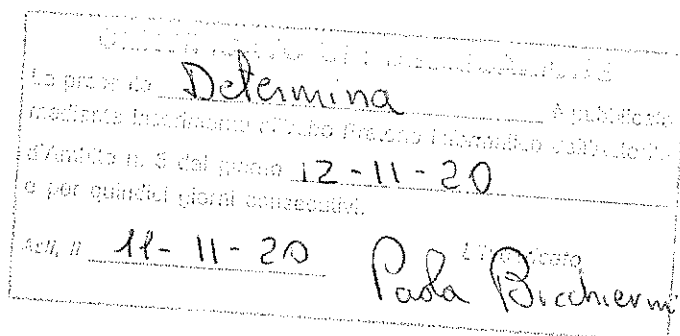 La presente Determina è pubblicata
mediante inserimento all'Albo Pretorio Informatico dell'Autorità
d'Ambito n. 5 dal giorno 12-11-20
e per quindici giorni consecutivi.
Asti, lì 11-11-20 L'Incaricato
Paola Bicchierini